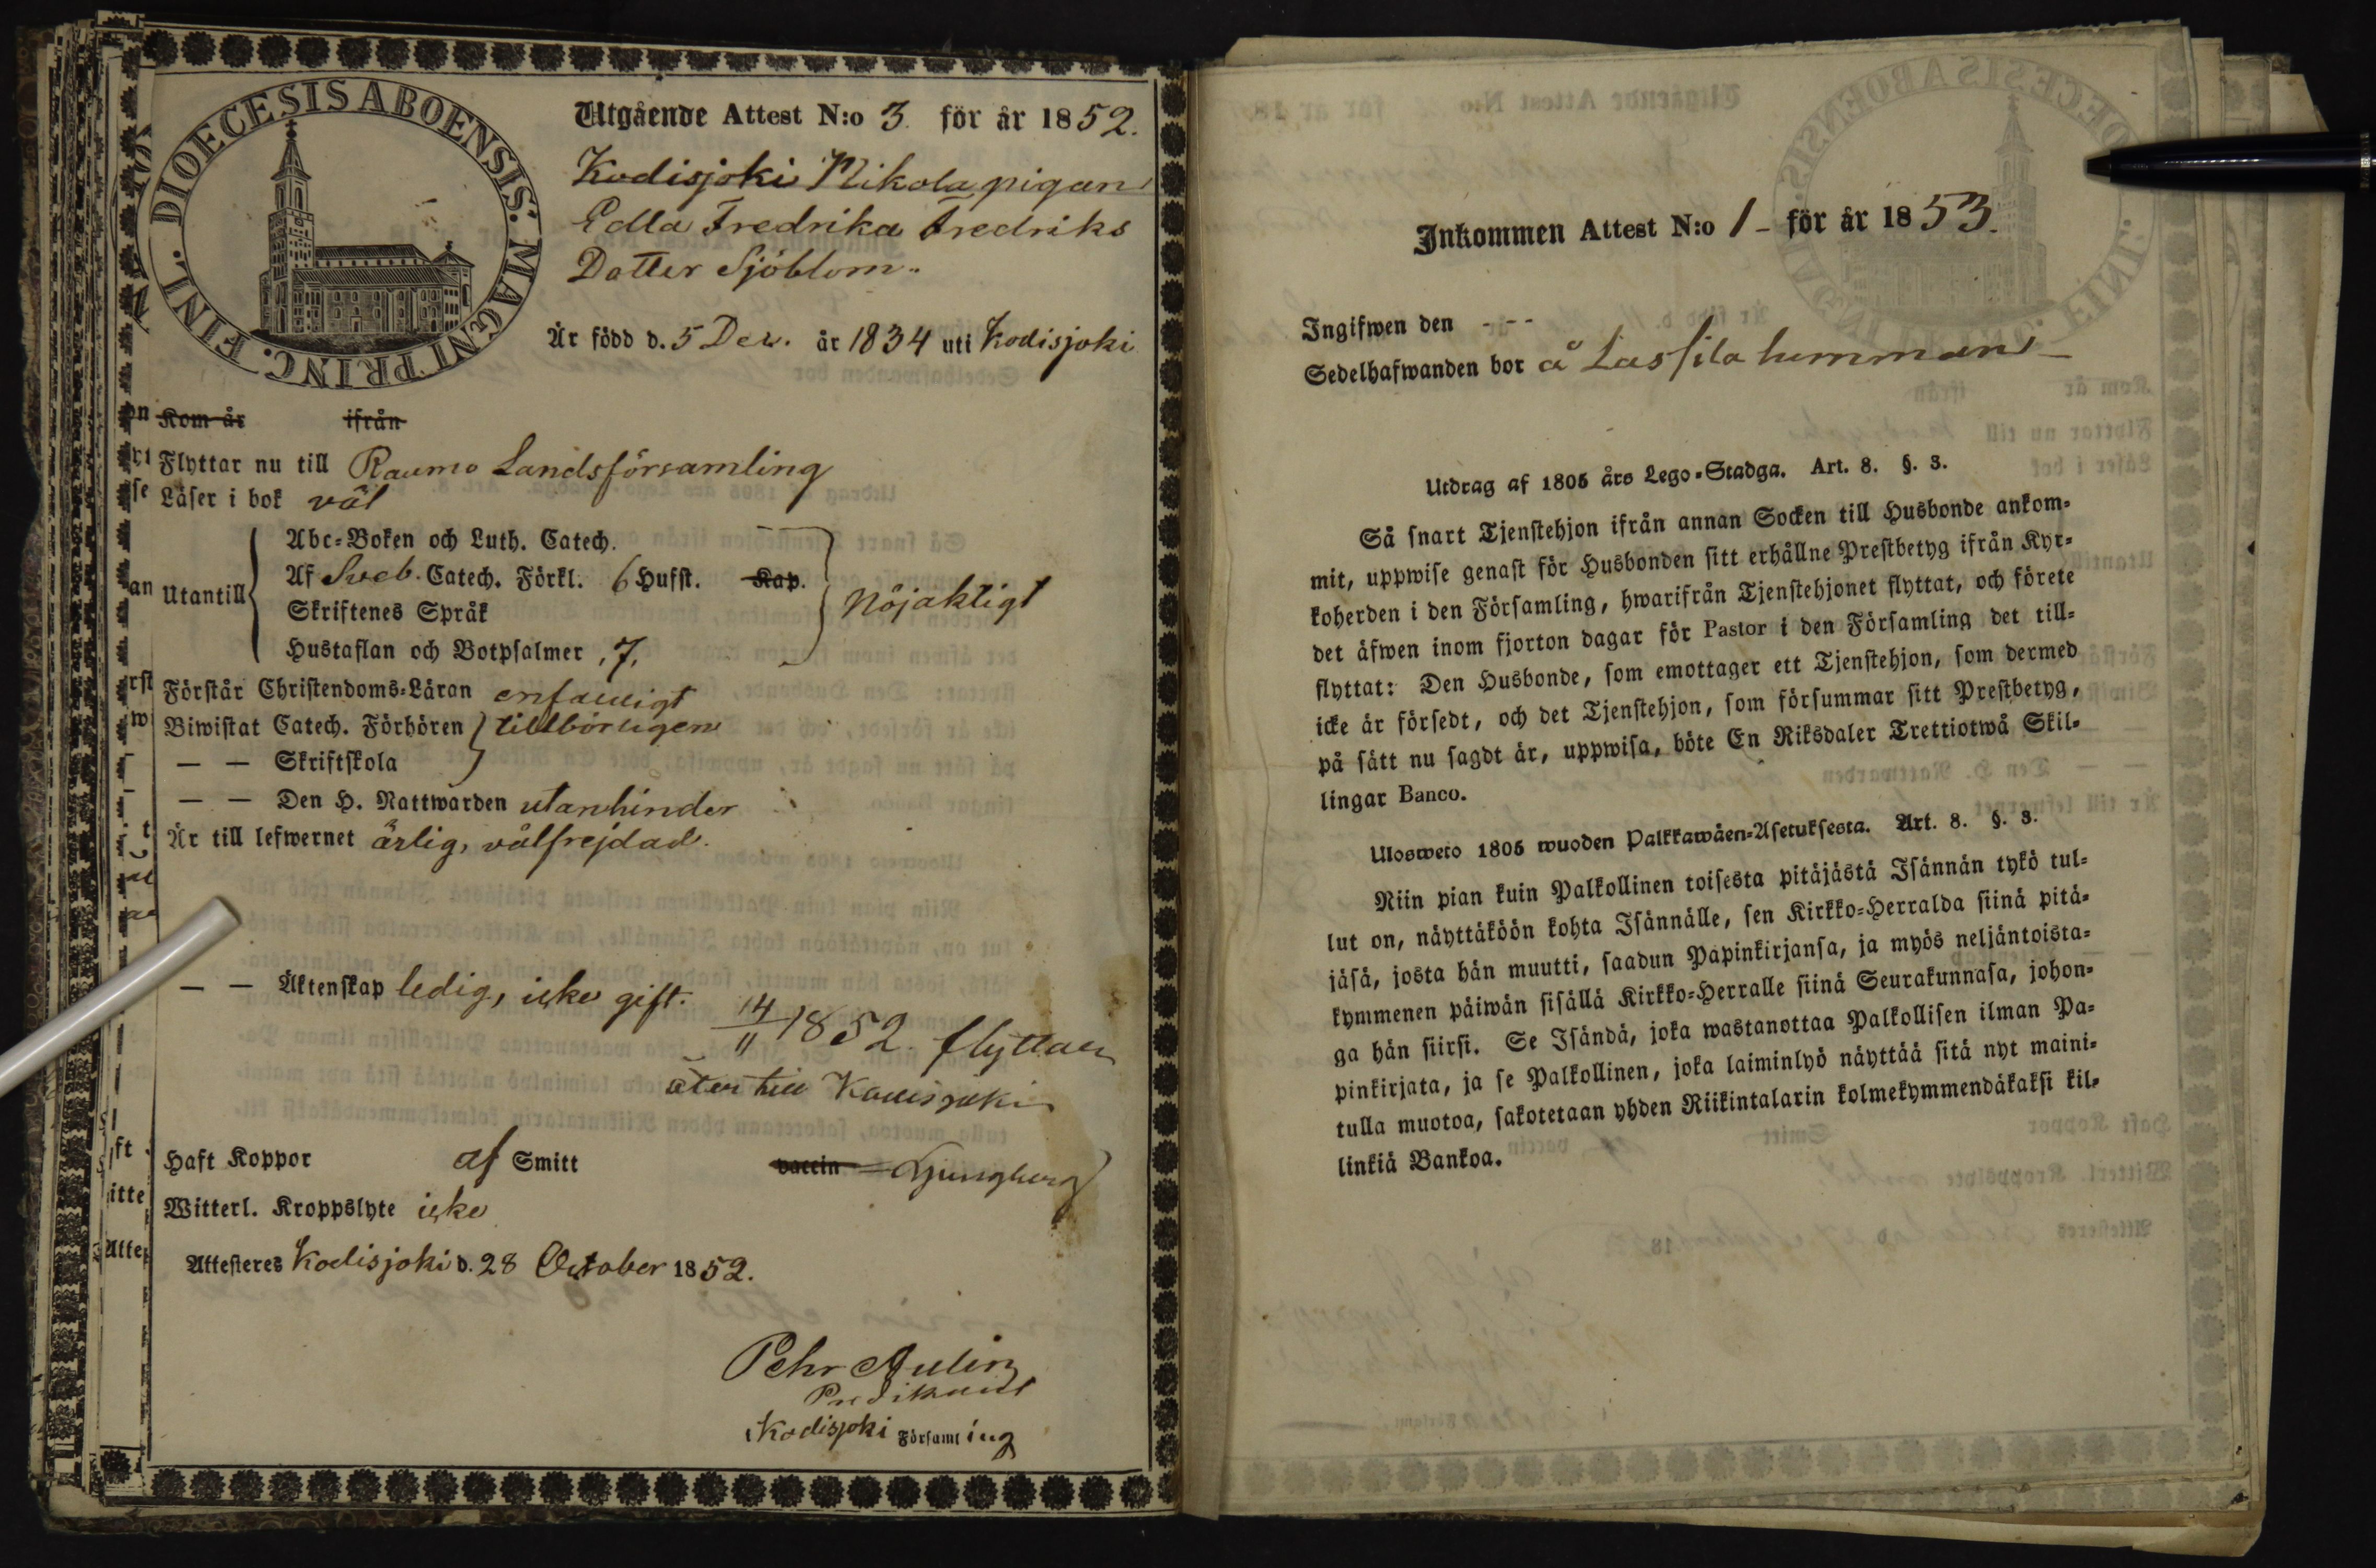 DIOECESIS ABOENSIS. MAGNI PRINC. FINL.
Utgående Attest N:o 3 för år 1852.
Kodisjoki Nikola pigan
Edla Fredrika Fredriks
Dotter Sjöblom.
Är född d. 5 Dec. år 1834 uti Kodisjoki
Kom år ifrån
Flyttar nu till Raumo Landsförsamling
Läser i bok väl
Utantill
Abc-Boken och Luth. Catech.
Af Sveb. Catech. Förkl. 6 Hufst. Kap.
Skriftenes Språk
Hustaflan och Botpsalmer, 7,
Nöjaktigt
Förstår Christendoms-Läran enfaldigt
Biwistat Catech. Förhören tillbörligen
— — Skriftskola
— — Den H. Nattwarden utan hinder
Är till lefwernet ärlig, välfrejdad.
— — Äktenskap ledig, icke gift.
14/11 1852. flyttar
åter till Kodisjoki
Haft Koppor af Smitt vaccin Ljungberg
Witterl. Kroppslyte icke
Attesteres Kodisjoki d. 28 October 1852.
Pehr Aulin
Predikant
Kodisjoki Församling
Inkommen Attest N:o 1 - för år 1853.
Ingifwen den - - -
Sedelhafwanden bor å Lassila hemman -
Utdrag af 1805 års Lego-Stadga. Art. 8. §. 3.
Så snart Tjenstehjon ifrån annan Socken till Husbonde ankom-
mit, uppwise genast för Husbonden sitt erhållne Prestbetyg ifrån Kyr-
koherden i den Församling, hwarifrån Tjenstehjonet flyttat, och förete
det äfwen inom fjorton dagar för Pastor i den Församling det till-
flyttat: Den Husbonde, som emottager ett Tjenstehjon, som dermed
icke är försedt, och det Tjenstehjon, som försummar sitt Prestbetyg,
på sätt nu sagdt är, uppwisa, böte En Riksdaler Trettiotwå Skil-
lingar Banco.
Ulosweto 1805 wuoden Palkkawäen-Asetuksesta. Art. 8. §. 3.
Niin pian kuin Palkollinen toisesta pitäjästä Isännän tykö tul-
lut on, näyttäköön kohta Isännälle, sen Kirkko-Herralda siinä pitä-
jäsä, josta hän muutti, saadun Papinkirjansa, ja myös neljäntoista-
kymmenen päiwän sisällä Kirkko-Herralle siinä Seurakunnasa, johon-
ga hän siirsi. Se Isändä, joka wastanottaa Palkollisen ilman Pa-
pinkirjata, ja se Palkollinen, joka laiminlyö näyttää sitä nyt maini-
tulla muotoa, sakotetaan yhden Riikintalarin kolmekymmendäkaksi kil-
linkiä Bankoa.